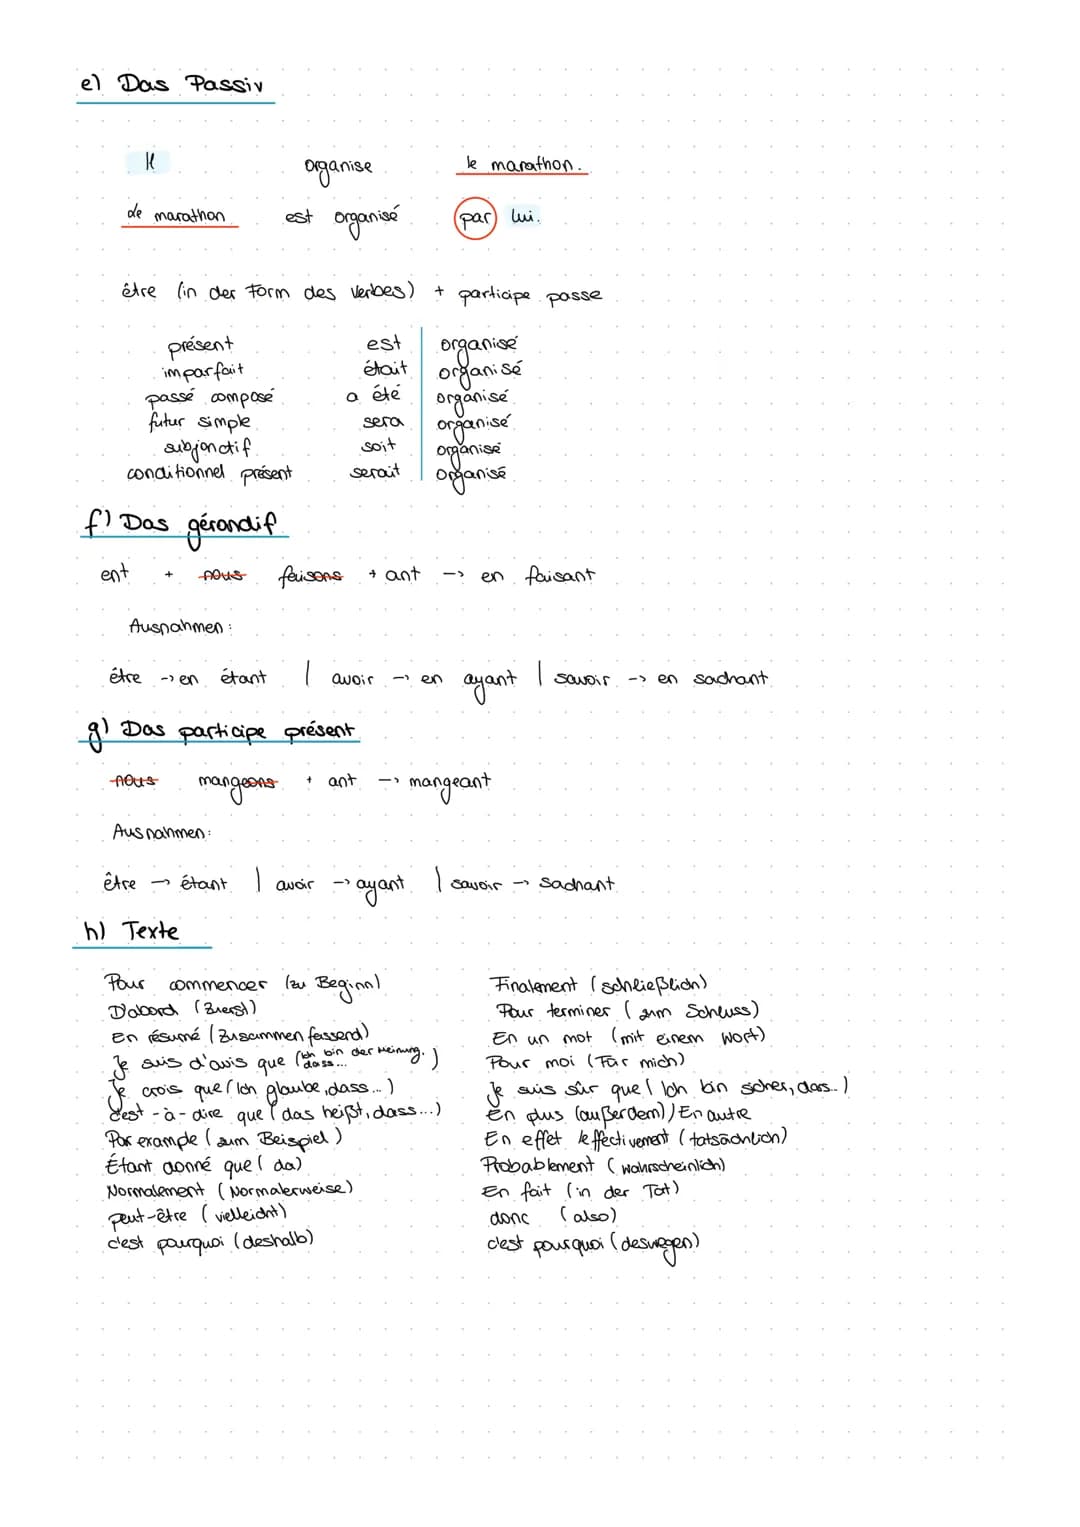 e) Das Passiv
Il organise le marathon.
de marathon est organisé par lui.
être (in der Form des Verbes) + participe passe
présent est organisé
imparfait était organisé
passé composé a été organisé
futur simple sera organisé
subjonctif soit organisé
conditionnel présent serait organisé
f) Das gérondif
ent + nous faisons + ant -> en faisant
Ausnahmen:
être -> en étant | avoir -> en ayant | savoir -> en sachant
g) Das participe présent
nous mangeons + ant -> mangeant
Ausnahmen:
être -> étant | avoir -> ayant | savoir -> sachant
h) Texte
Pour commencer (zu Beginn)
D'abord (Zuerst)
En résumé (Zusammenfassend)
Je suis d'avis que (Ich bin der Meinung, dass...)
Je crois que (Ich glaube, dass...)
C'est-à-dire que (das heißt, dass...)
Par example (zum Beispiel)
Étant donné que (da)
Normalement (Normalerweise)
peut-être (vielleicht)
c'est pourquoi (deshalb)
Finalement (schließlich)
Pour terminer (zum Schluss)
En un mot (mit einem Wort)
Pour moi (Für mich)
Je suis sûr que (Ich bin sicher, dass..)
En plus (außerdem) / En autre
En effet / effectivement (tatsächlich)
Probablement (wahrscheinlich)
En fait (in der Tat)
donc (also)
c'est pourquoi (deswegen)